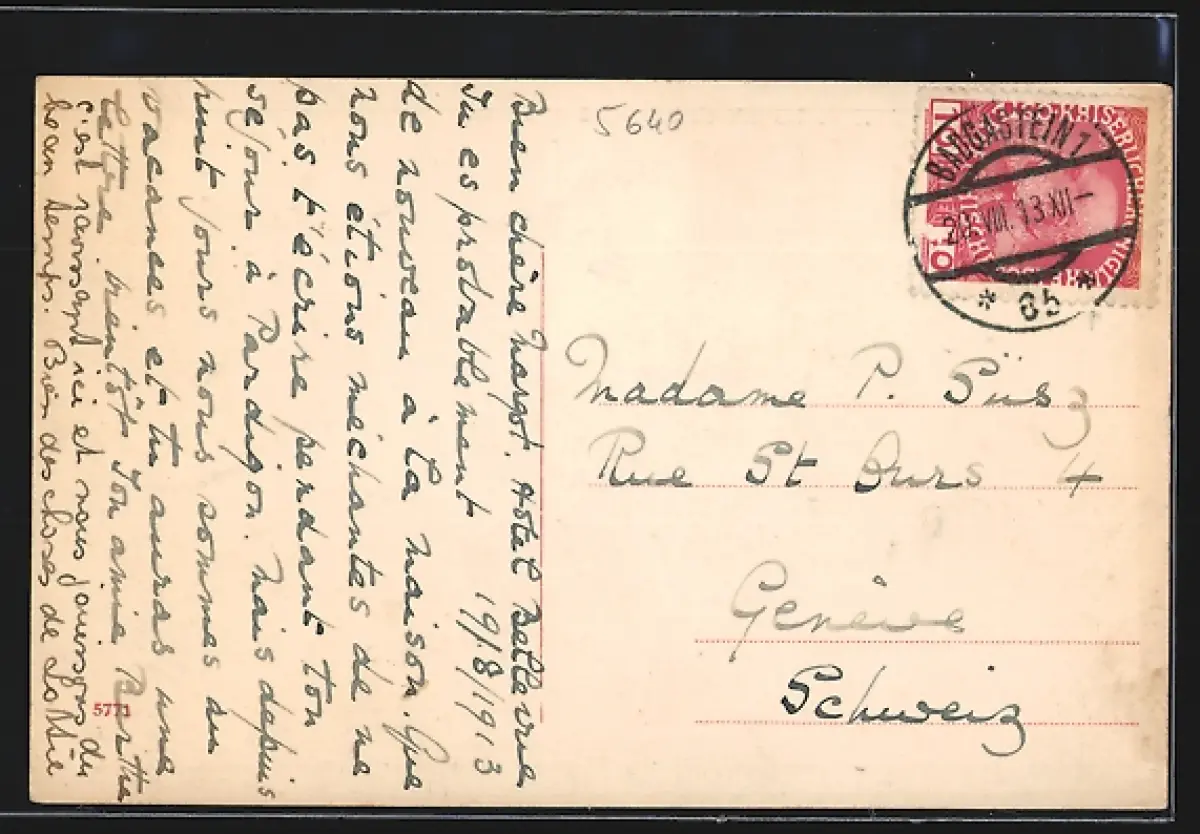 Bien chère Margot. Hôtel Bellevue
Tu es probablement 19/8/1913
de nouveau à la maison. Que
nous étions méchantes de ne
pas t'écrire pendant ton
séjour à Pardigon. Mais depuis
huit jours nous sommes en
vacances et tu auras une
lettre bientôt. Ton amie Bertha
c'est ravissant ici et nous jouissons du
beau temps. Bien des choses de Lottie
5640
BADGASTEIN 1
20.VIII.13 XII-
* 85 *
Madame P. Süsz
Rue St Ours 4
Genève
Schweiz
5771